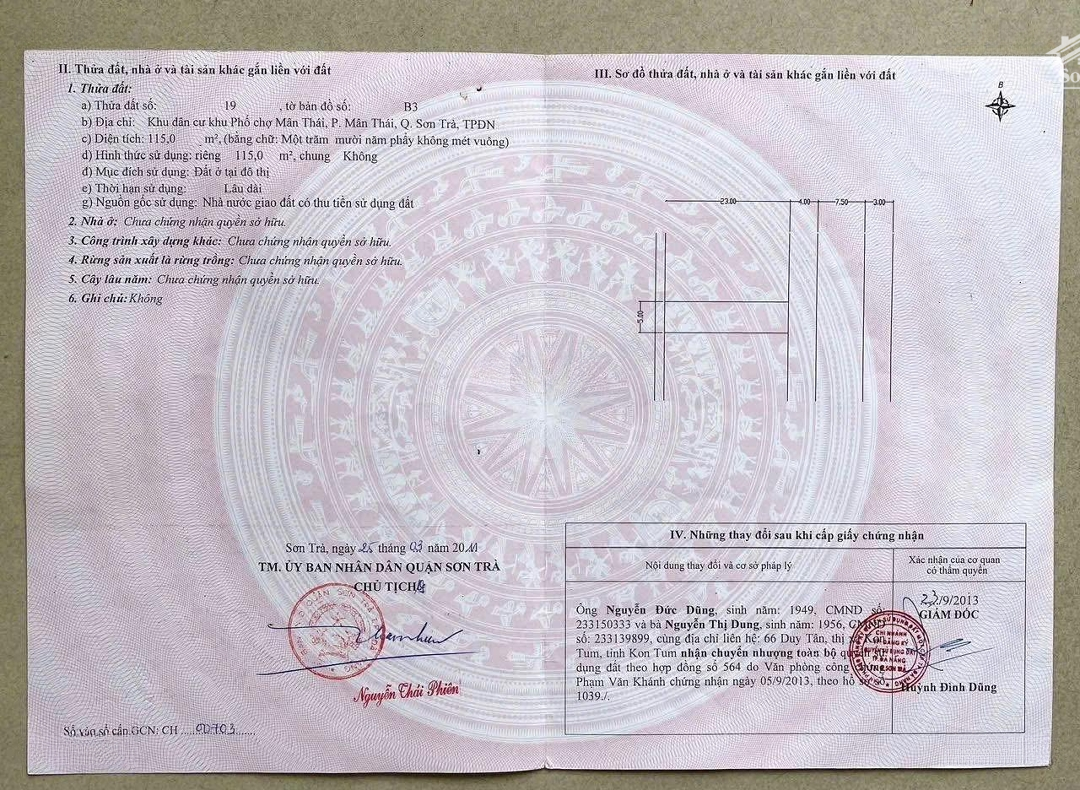 II. Thửa đất, nhà ở và tài sản khác gắn liền với đất
1. Thửa đất:
a) Thửa đất số: 19 , tờ bản đồ số: B3
b) Địa chỉ: Khu dân cư khu Phố chợ Mân Thái, P. Mân Thái, Q. Sơn Trà, TPĐN
c) Diện tích: 115,0 m², (bằng chữ: Một trăm mười năm phẩy không mét vuông)
d) Hình thức sử dụng: riêng 115,0 m², chung Không
đ) Mục đích sử dụng: Đất ở tại đô thị
e) Thời hạn sử dụng: Lâu dài
g) Nguồn gốc sử dụng: Nhà nước giao đất có thu tiền sử dụng đất
2. Nhà ở: Chưa chứng nhận quyền sở hữu.
3. Công trình xây dựng khác: Chưa chứng nhận quyền sở hữu.
4. Rừng sản xuất là rừng trồng: Chưa chứng nhận quyền sở hữu.
5. Cây lâu năm: Chưa chứng nhận quyền sở hữu.
6. Ghi chú: Không
Sơn Trà, ngày 25 tháng 03 năm 2011
TM. ỦY BAN NHÂN DÂN QUẬN SƠN TRÀ
CHỦ TỊCH
Nguyễn Thái Phiên
Số vào sổ cấp GCN: CH .....00703......
III. Sơ đồ thửa đất, nhà ở và tài sản khác gắn liền với đất
B
23.00 4.00 7.50 3.00
5.00
IV. Những thay đổi sau khi cấp giấy chứng nhận
Nội dung thay đổi và cơ sở pháp lý
Xác nhận của cơ quan
có thẩm quyền
Ông Nguyễn Đức Dũng, sinh năm: 1949, CMND số:
233150333 và bà Nguyễn Thị Dung, sinh năm: 1956, CMND
số: 233139899, cùng địa chỉ liên hệ: 66 Duy Tân, thị xã Kon
Tum, tỉnh Kon Tum nhận chuyển nhượng toàn bộ quyền sử
dụng đất theo hợp đồng số 564 do Văn phòng công chứng
Phạm Văn Khánh chứng nhận ngày 05/9/2013, theo hồ sơ số
1039./.
23/9/2013
GIÁM ĐỐC
CHI NHÁNH
Huỳnh Đình Dũng